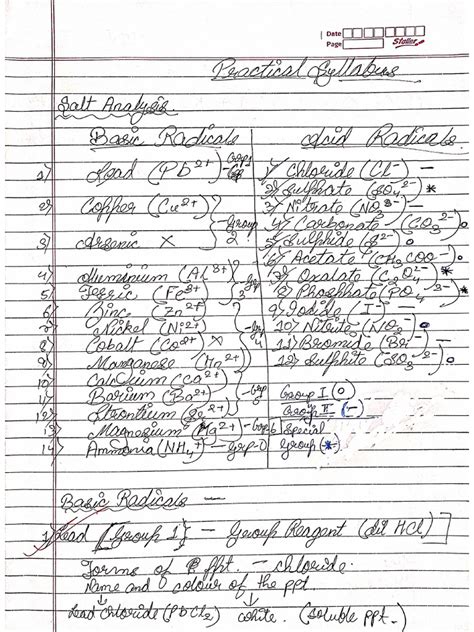 Date
Page
Stallar
Practical Syllabus
Salt Analysis.
Basic Radicals
Acid Radicals.
1) Lead (Pb2+) - Grp 1
1) Chloride (Cl-) —
2) Sulphate (SO4 2-) *
2) Copher (Cu2+)
3) Nitrate (NO3-) —
Group 2
4) Carbonate (CO3 2-) o
3) Arsenic X
5) Sulphide (S2-) o
6) Acetate (CH3COO-) o
4) Aluminium (Al3+)
7) Oxalate (C2O4 2-) *
5) Ferric (Fe3+)
3
8) Phosphate (PO4 3-) *
6) Zinc (Zn2+)
9) Iodide (I-) —
7) Nickel (Ni2+)
Group 4
10) Nitrite (NO2-) o
8) Cobalt (Co2+) X
11) Bromide (Br-) —
9) Manganese (Mn2+)
12) Sulphite (SO3 2-) o
10) Calcium (Ca2+)
11) Barium (Ba2+) - Grp 5
Group I (o)
12) Strontium (Sr2+)
Group II (-)
13) Magnesium (Mg2+) - Grp 6
Special
14) Ammonia (NH4+) - grp-0
Group (*)
Basic Radicals —
1) Lead {Group 1} — Group Reagent (dil HCl)
Forms of ppt. — chloride.
Name and colour of the ppt
Lead Chloride (PbCl2) white. (soluble ppt.)